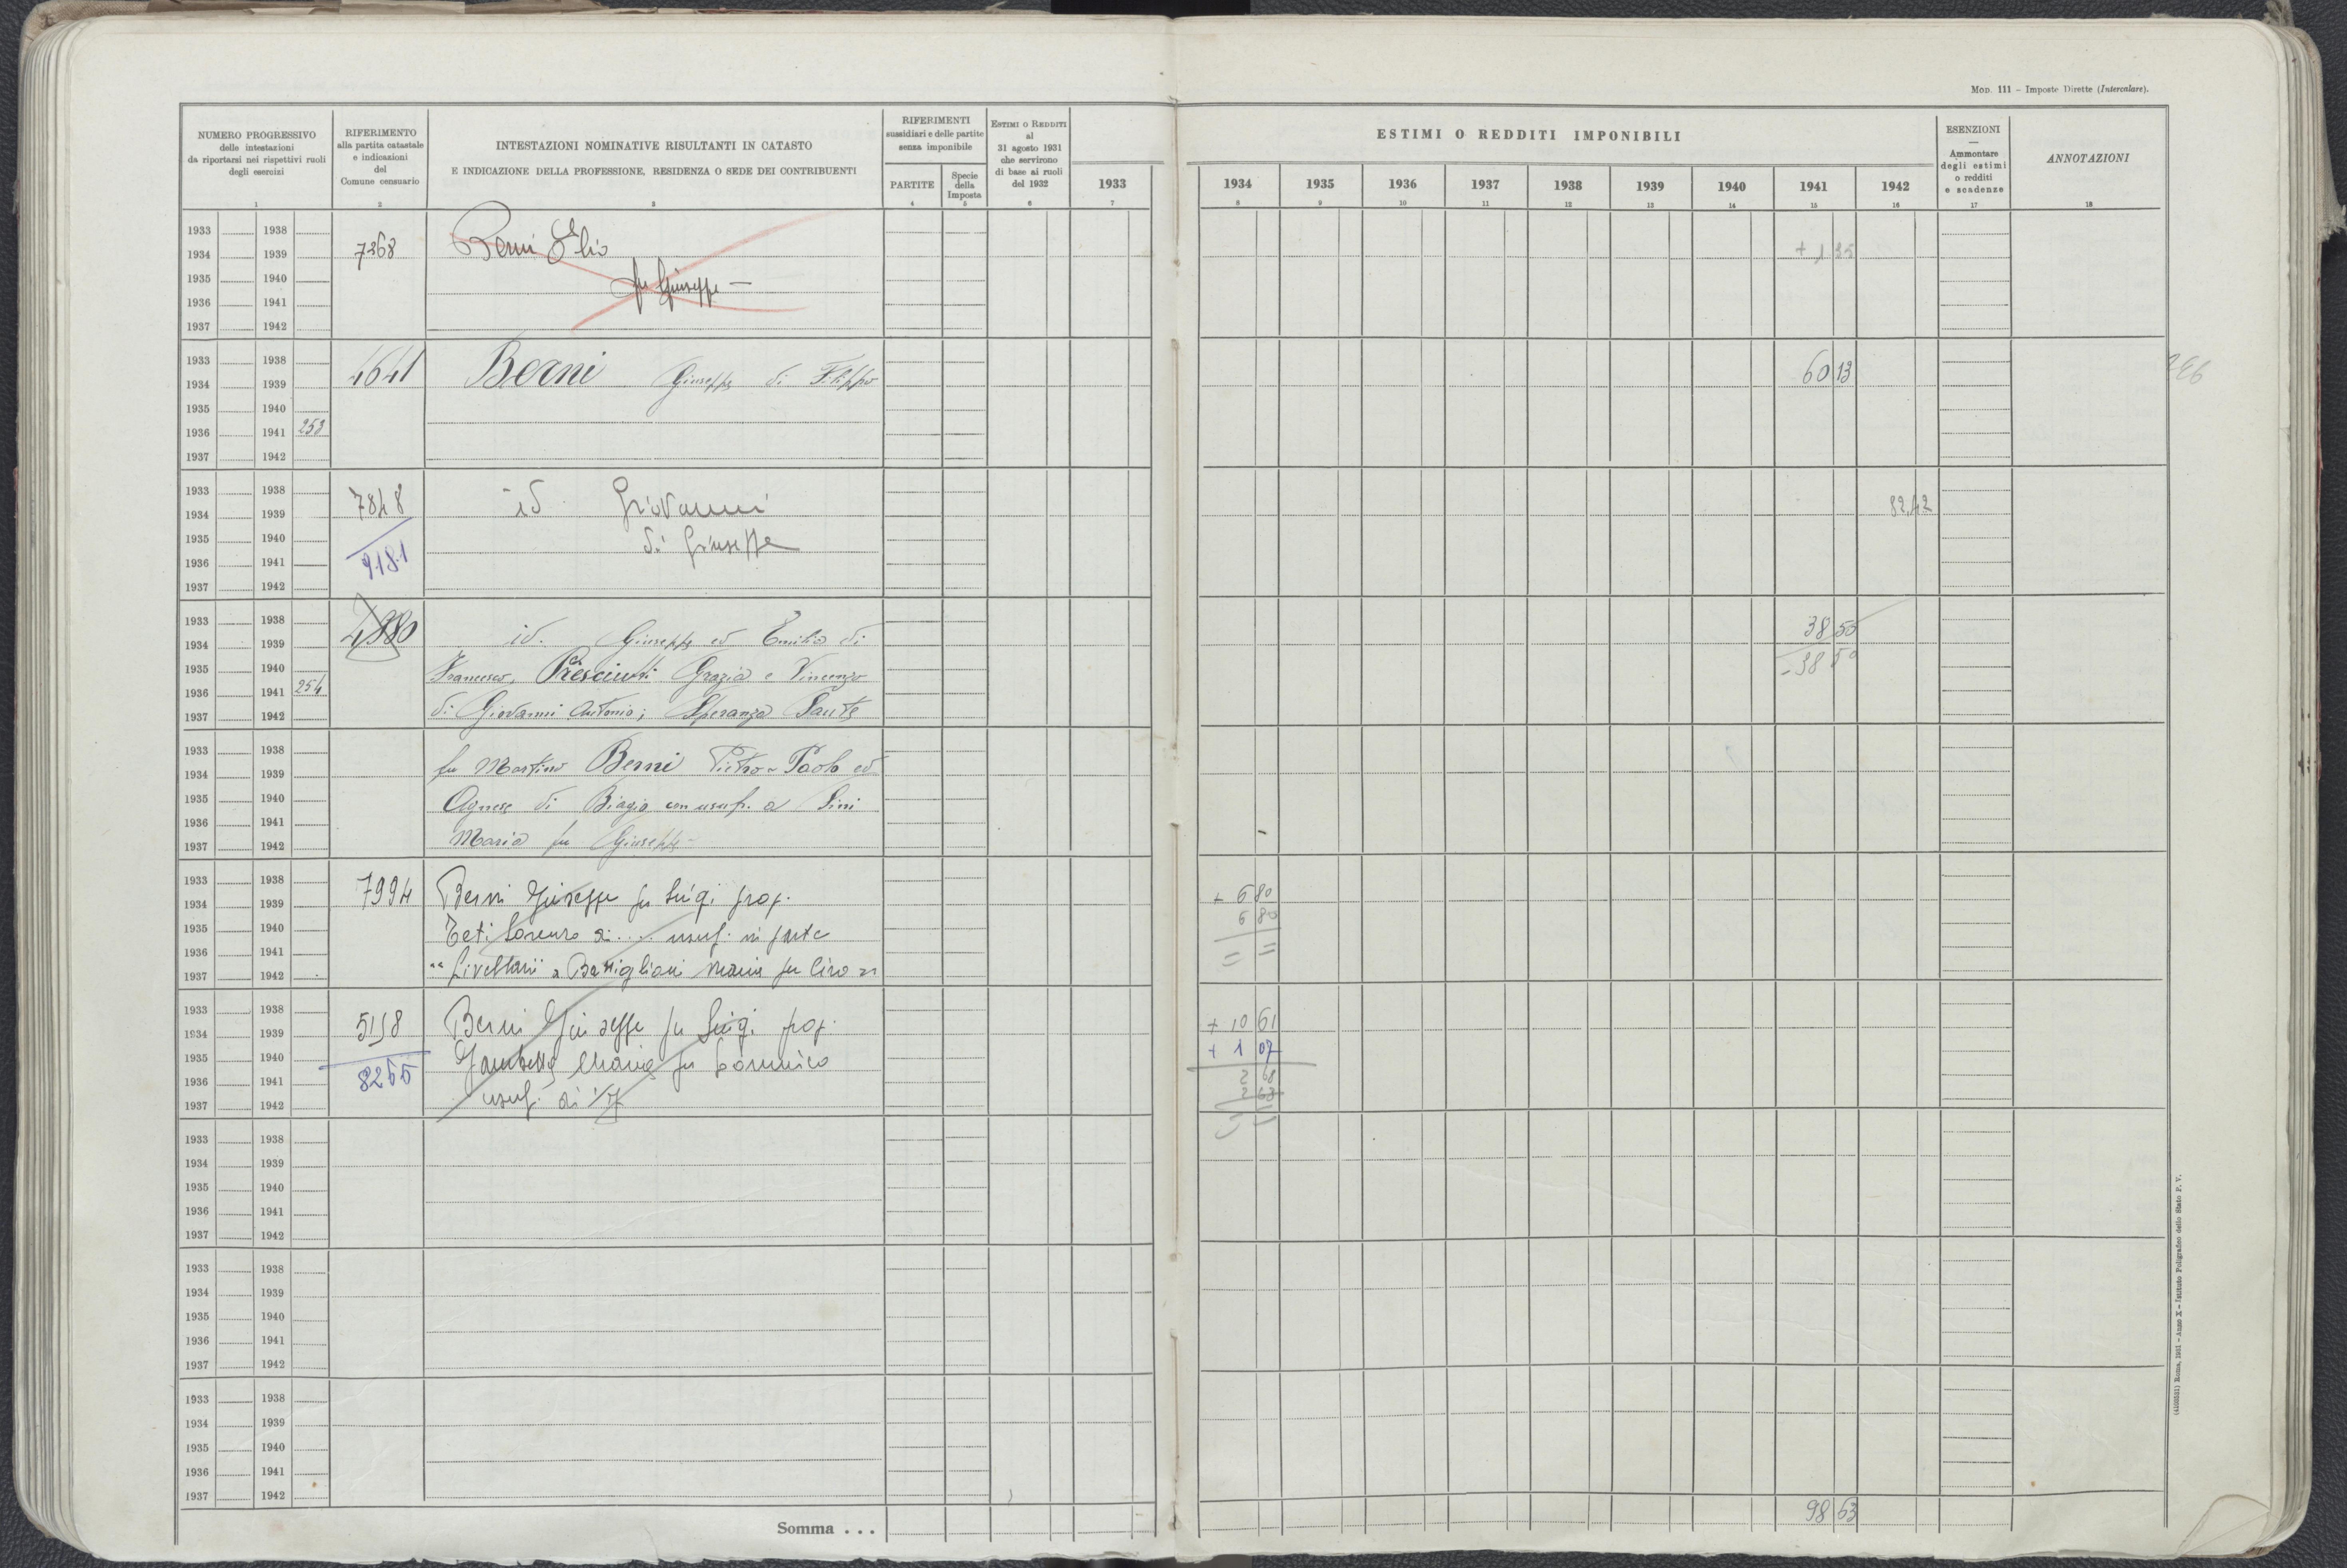 Mod. 111 – Imposte Dirette (Intercalare).
NUMERO PROGRESSIVO
delle intestazioni
da riportarsi nei rispettivi ruoli
degli esercizi
1
RIFERIMENTO
alla partita catastale
e indicazioni
del
Comune censuario
2
INTESTAZIONI NOMINATIVE RISULTANTI IN CATASTO
E INDICAZIONE DELLA PROFESSIONE, RESIDENZA O SEDE DEI CONTRIBUENTI
3
RIFERIMENTI
sussidiari e delle partite
senza imponibile
PARTITE
4
Specie
della
Imposta
5
ESTIMI O REDDITI
al
31 agosto 1931
che servirono
di base ai ruoli
del 1932
6
1933
7
ESTIMI O REDDITI IMPONIBILI
1934 1935 1936 1937 1938 1939 1940 1941 1942
8 9 10 11 12 13 14 15 16
ESENZIONI
—
Ammontare
degli estimi
o redditi
e scadenze
17
ANNOTAZIONI
18
1933 1938
1934 1939 7268 Berni Elio + 1 35
1935 1940 fu Giuseppe —
1936 1941
1937 1942
1933 1938
1934 1939 4641 Berni Giuseppe di Filippo 60 13
1935 1940
1936 1941 253
1937 1942
1933 1938
1934 1939 7848 id Giovanni 82,42
1935 1940 di Giuseppe
1936 1941 9181
1937 1942
1933 1938
1934 1939 id. Giuseppe ed Emilio di 38 50
1935 1940 Francesco, Presciutti Grazia e Vincenzo - 38 50
1936 1941 254
1937 1942 di Giovanni Antonio; Speranza Sante
1933 1938
1934 1939 fu Martino Berni Pietro Paolo ed
1935 1940 Agnese di Biagio con usuf. a Pini
1936 1941
1937 1942 Maria fu Giuseppe -
1933 1938
1934 1939 7994 Berni Giuseppe fu Luigi prop. + 6 80
1935 1940 Teti Lorenzo di .... usuf. in parte 6 80
1936 1941 = =
1937 1942 " Livellari a Battiglioni Maria fu Ciro "
1933 1938
1934 1939 5198 Berni Giuseppe fu Luigi prop. + 10 61
1935 1940 Maria fu Domenico + 1 07
1936 1941 8265 2 68
1937 1942 usuf. di 2 68
1933 1938
1934 1939
1935 1940
1936 1941
1937 1942
1933 1938
1934 1939
1935 1940
1936 1941
1937 1942
1933 1938
1934 1939
1935 1940
1936 1941
1937 1942
Somma . . . 98 63